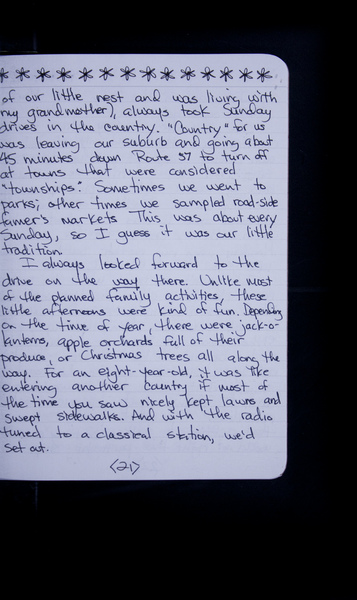 of our little nest and was living with
my grandmother), always took Sunday
drives in the country. "Country" for us
was leaving our suburb and going about
45 minutes down Route 57 to turn off
at towns that were considered
"townships." Sometimes we went to
parks; other times we sampled road-side
farmer's markets. This was about every
Sunday, so I guess it was our little
tradition.
I always looked forward to the
drive on the way there. Unlike most
of the planned family activities, these
little afternoons were kind of fun. Depending
on the time of year, there were jack-o-
lanterns, apple orchards full of their
produce, or Christmas trees all along the
way. For an eight-year-old, it was like
entering another country if most of
the time you saw nicely kept lawns and
swept sidewalks. And with the radio
tuned to a classical station, we'd
set out.
<21>